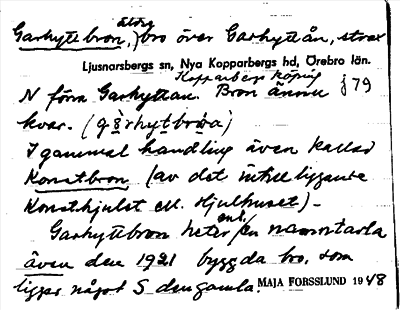 äldre
Garhyttebron, bro över Garhyttån, strax
Ljusnarsbergs sn, Nya Kopparbergs hd, Örebro län.
Kopparbergs köping
N förra Garhyttan. Bron ännu § 79
kvar.
I gammal handling även kallad
Konstbron (av det intill liggande
Konsthjulet ell. Hjulhuset) –
Garhyttebron heter enl. en namntavla
även den 1921 byggda bro, som
ligger något S den gamla. MAJA FORSSLUND 1948